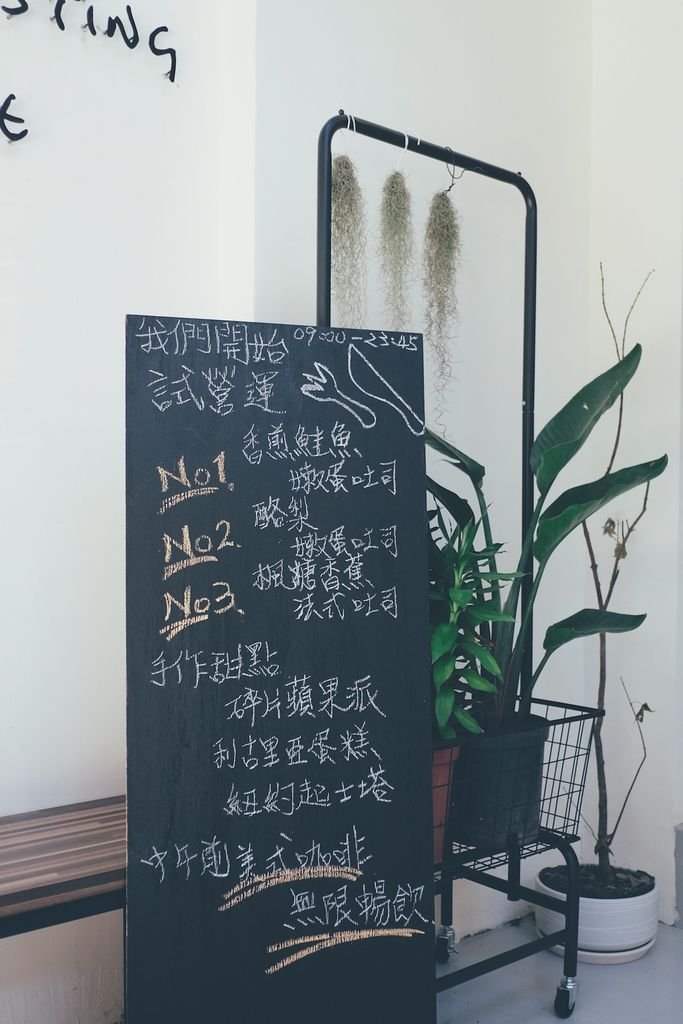 STING
E
我們開始 09:00-23:45
試營運
No1. 香煎鮭魚
嫩蛋吐司
No2. 酪梨
嫩蛋吐司
No3. 楓糖香蕉
法式吐司
手作甜點
碎片蘋果派
利古里亞蛋糕
紐約起士塔
中午前美式咖啡
無限暢飲